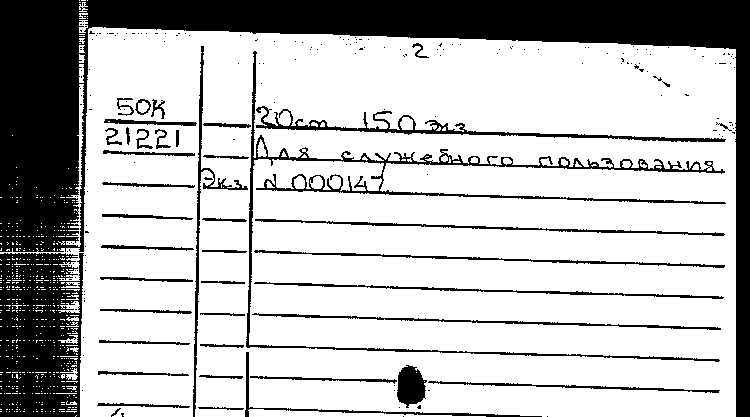 2
50К 20ст 150 экз
21221 Для служебного пользования.
Экз. N 000147